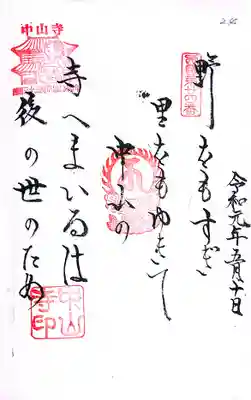 令和元年五月十日
野をもすぎ
里をもゆきて
中山の
寺へまいるは
後の世のため
中山寺
中山寺印